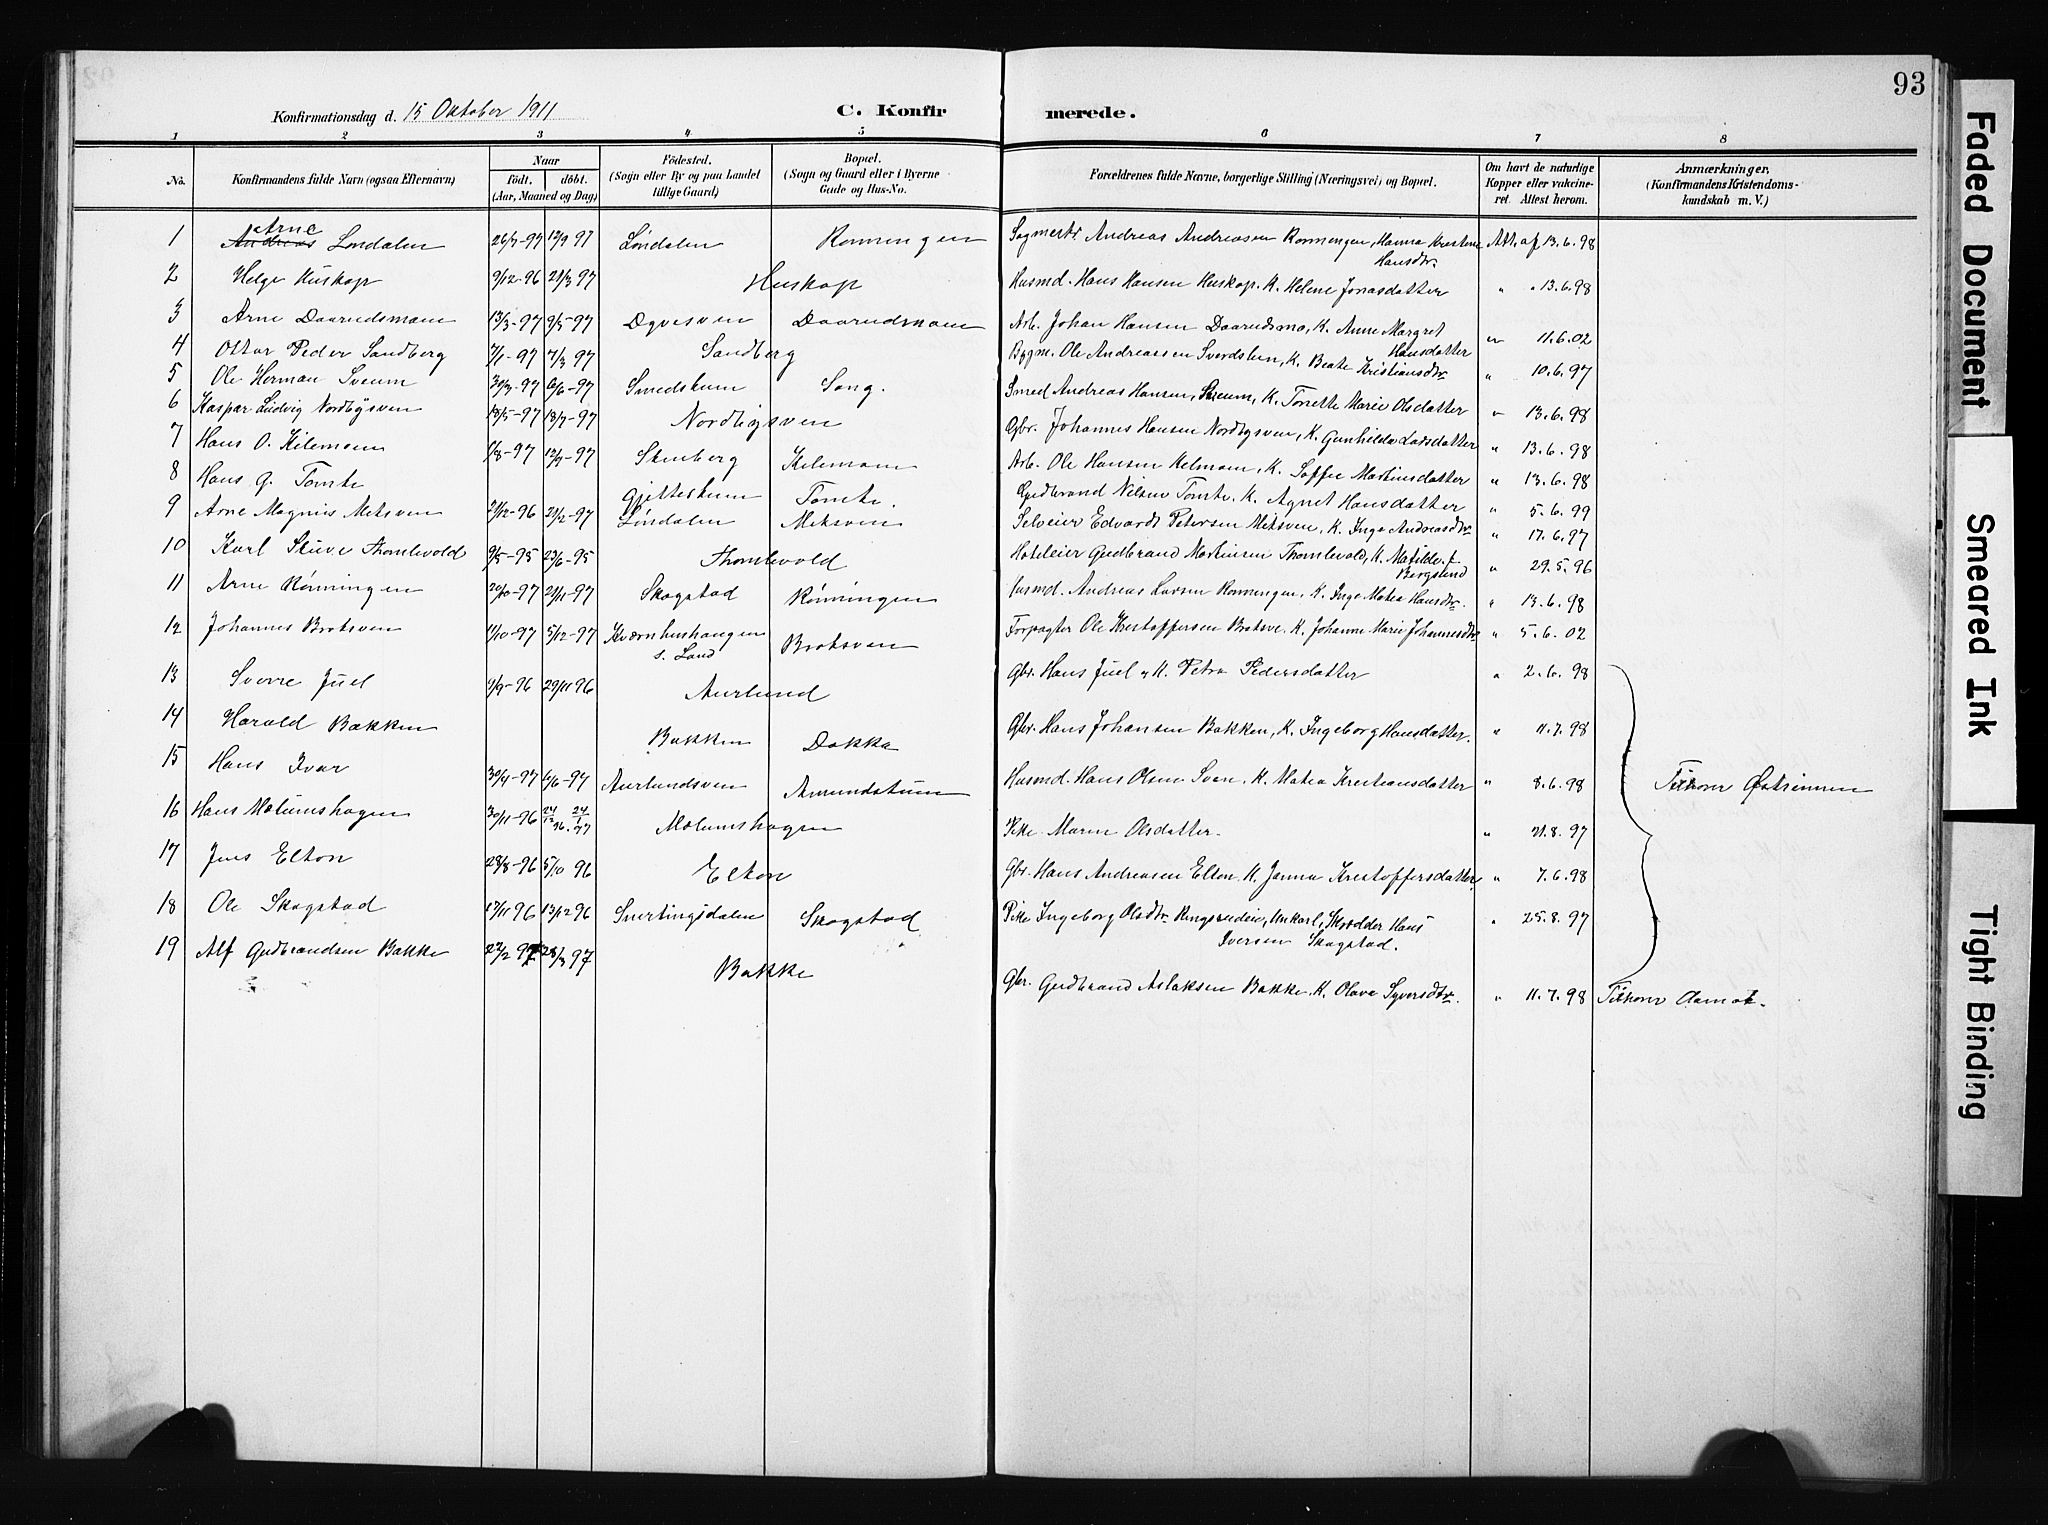 93
Konfirmationsdag d. 15 Oktober 1911 C. Konfirmerede.
1 2 3 4 5 6 7 8
No. Konfirmandens fulde Navn (ogsaa Efternavn) Naar født. døbt. (Aar, Maaned og Dag) Födested. (Sogn eller By og paa Landet tillige Gaard) Bopæl. (Sogn og Gaard eller i Byerne Gade og Hus-No. Forældrenes fulde Navne, borgerlige Stilling (Næringsvei) og Bopæl. Om havt de naturlige Kopper eller vakcineret. Attest herom. Anmærkninger. (Konfirmandens Kristendomskundskab m. V.)
1 Andreas Arne Londalen 26/7-97 12/9 97 Londalen Ronningen Sagmestr. Andreas Andreasen Ronningen, Hanna Kristine Hansdtr. Att. af 13.6.98
2 Helge Huskop 9/12-96 21/3 97 Huskop Husmd. Hans Hansen Huskop. K. Helene Jonasdatter " " 13.6.98
3 Arne Daarudsmoen 13/3-97 9/5-97 Dgvesven Daarudsmoen Arb. Johan Hansen Daarudsmo, K. Anne Margret Hansdatter " 11.6.02
4 Ottar Peder Sandberg 7/1-97 7/3 97 Sandberg Bygm. Ole Andreassen Sverdslen, K. Beate Kristiansdtr " 10.6.97
5 Ole Herman Sveum 30/3-97 6/6-97 Smedshum Sang. Smed Andreas Hansen, Sveum, K. Tonette Marie Olsdatter " 13.6.98
6 Kaspar Ludvig Nordbysven 13/5-97 18/7-97 Nordbysven Gbr. Johannes Hansen Nordbysven, K. Gunhilda Larsdatter " 13.6.98
7 Hans O. Kilemoen 1/8-97 12/9-97 Stenberg Kelemoen Arb. Ole Hansen Kelmoen, K. Soffie Martinsdatter " 13.6.98
8 Hans G. Tomte Gjetteshum Tomte. Gudbrand Nilsen Tomte. K. Agnet Hansdatter " 5.6.99
9 Arne Magnus Metsven 21/12-96 21/2-97 Londalen Metsven Selveier Edvardt Petersen Metsven, K. Inga Andreasdtr " 17.6.97
10 Karl Stuve Thomlevold 9/5-95 23/6-95 Thomlevold Hoteleier Gudbrand Martinsen Thomlevold, K. Matilde f. Bergslind " 29.5.96
11 Arne Rönningen 20/10-97 21/11-97 Skogstad Rönningen Husmd. Andreas Larsen Ronningen, K. Inge Matea Hansdtr. " 13.6.98
12 Johannes Brotsven 11/10-97 5/12-97 Kværnhushaugen s. Land Brotsven Forpagter Ole Krestoffersen Brotsve. K. Johanne Marie Johannesdtr " 5.6.02
13 Sverre Juel 1/9-96 29/11 96 Aurlund Gbr. Hans Juel & K. Petra Pedersdatter " 2.6.98
14 Harald Bakken Bakken Dokka Gbr. Hans Johansen Bakken, K. Ingeborg Hansdatter. " 11.7.98
15 Hans Ivar 30/4-97 6/6-97 Aurlundsven Aurundstuen Husmd. Hans Olsen Sven. K. Matea Krestiansdatter " 8.6.98 Tilhører Østsinnen
16 Hans Mælumshagen 30/11-96 24/12 96. 24/1 97 Mælumshagen Pike. Maren Olsdatter. " 21.8.97
17 Jens Elton 28/8-96 5/10 96 Elton Gbr. Hans Andreasen Elton. K. Janna Krestoffersdatter " 7.6.98
18 Ole Skogstad 17/11 96 13/12 96 Snertingsdalen Skogstad Pike Ingeborg Olsdtr. Ringsrudeie, Unkarl, Skrædder Hans Iversen Skogstad. " 25.8.97
19 Alf Gudbrandsen Bakke 22/2 97 28/3 97 Bakke Gbr. Gudbrand Aslaksen Bakke. K. Olava Syversdtr. " 11.7.98 Tilhører Aamot.
Faded Document
Smeared Ink
Tight Binding